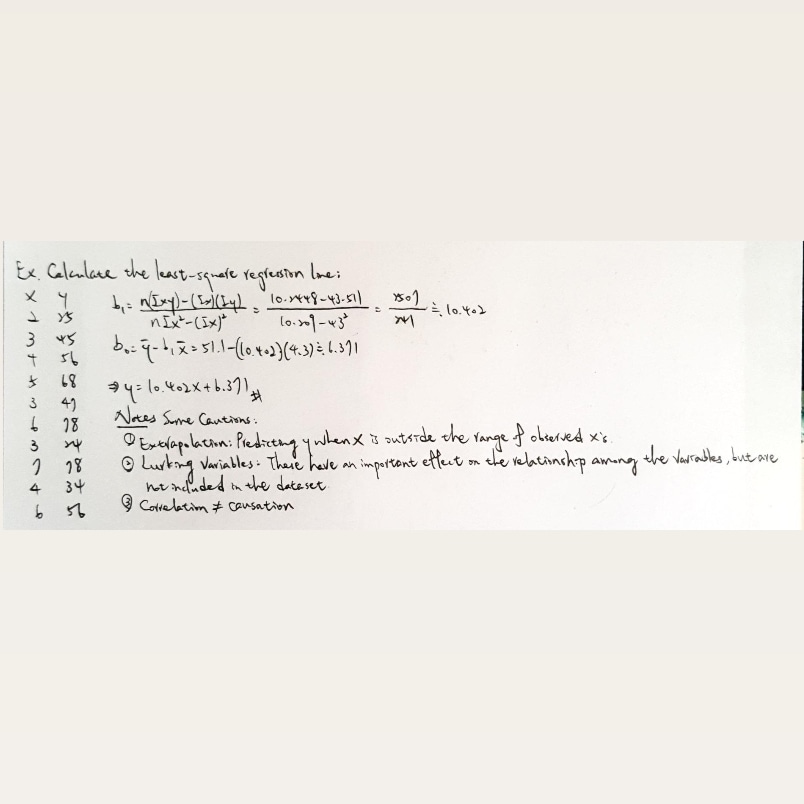 Ex. Calculate the least-square regression line:
x y
2 25
3 45
4 56
5 68
3 47
6 78
3 24
7 78
4 34
6 56
b₁ = n(Σxy)-(Σx)(Σy) / nΣx²-(Σx)² = 10·2448-43·511 / 10·209-43² = 2507 / 241 ≒ 10.402
b₀ = ȳ - b₁x̄ = 51.1-(10.402)(4.3) ≒ 6.371
⇒ y = 10.402x+6.371 #
Notes Some Cautions:
① Extrapolation: Predicting y when x is outside the range of observed x's.
② Lurking Variables: These have an important effect on the relationship among the variables, but are
not included in the dataset.
③ Correlation ≠ causation